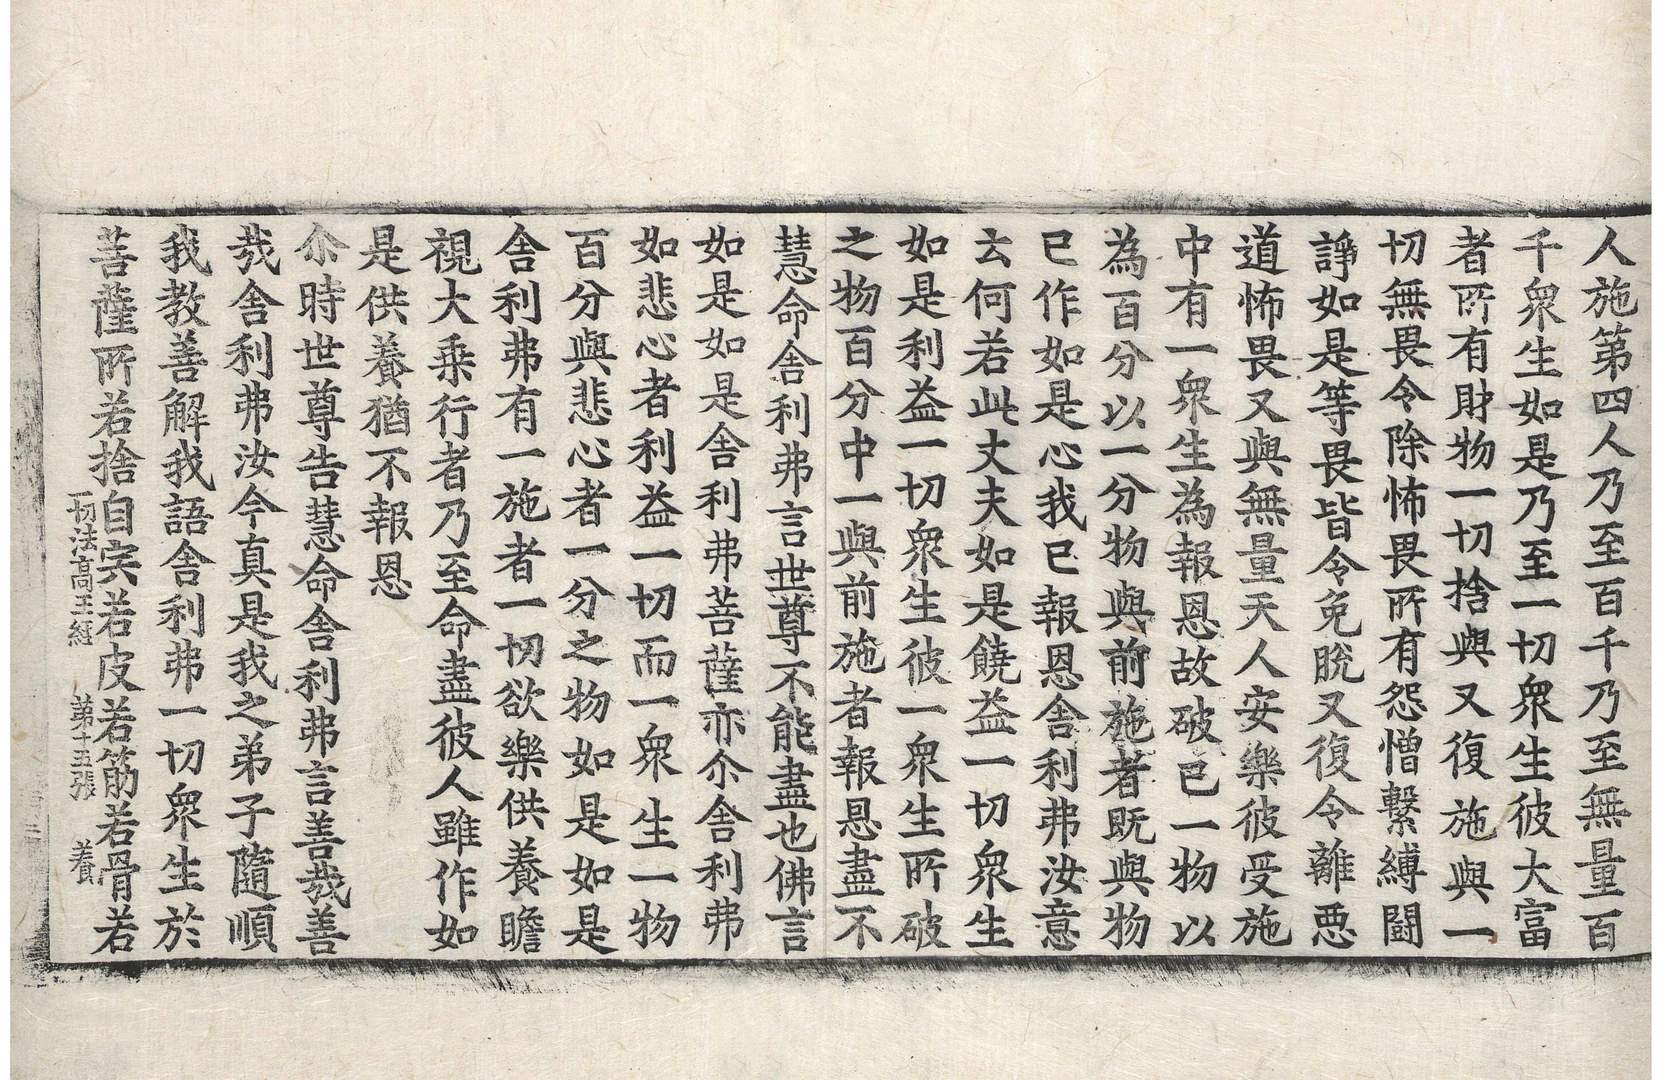 人施第四人乃至百千乃至無量百
千衆生如是乃至一切衆生彼大富
者所有財物一切捨與又復施與一
切無畏令除怖畏所有怨憎繫縛鬪
諍如是等畏皆令免脫又復令離惡
道怖畏又與無量天人安樂彼受施
中有一衆生為報恩故破已一物以
為百分以一分物與前施者既與物
已作如是心我已報恩舍利弗汝意
云何若此丈夫如是饒益一切衆生
如是利益一切衆生彼一衆生所破
之物百分中一與前施者報恩盡不
慧命舍利弗言世尊不能盡也佛言
如是如是舍利弗菩薩亦尒舍利弗
如悲心者利益一切而一衆生一物
百分與悲心者一分之物如是如是
舍利弗有一施者一切欲樂供養瞻
視大乘行者乃至命盡彼人雖作如
是供養猶不報恩
尒時世尊告慧命舍利弗言善哉善
哉舍利弗汝今真是我之弟子隨順
我教善解我語舍利弗一切衆生於
菩薩所若捨自宍若皮若筋若骨若
一切法高王経 第十五張 養